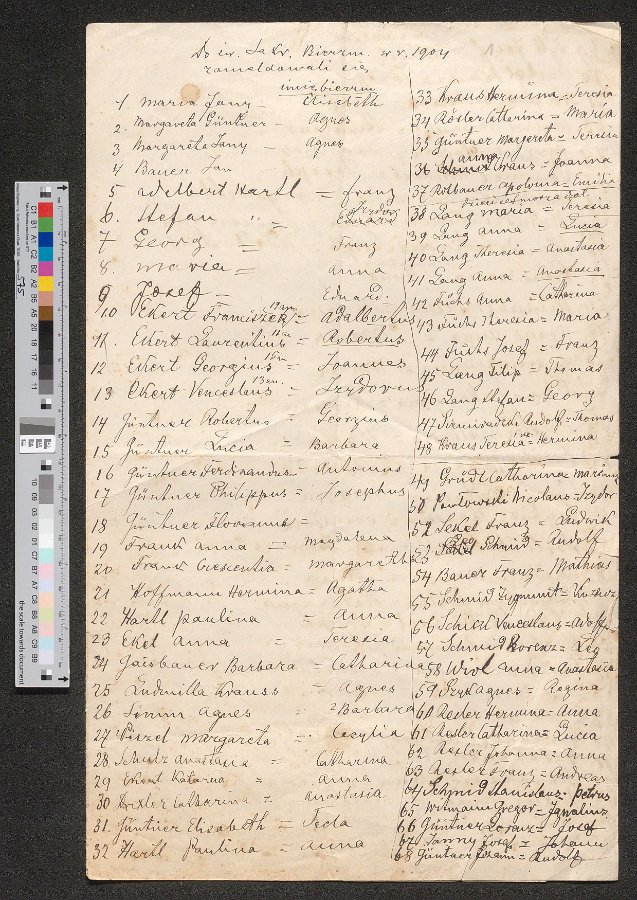 Do św. Sakr. Bierzm. w r. 1904
zameldowali się
imię bierzm
1. Maria Jany – Elisabeth
2. Margareta Güntner – Agnes
3 Margareta Jany – Agnes
4 Bauer Jan –
5 Wilbert Hartl = Franz
6. Stefan " = Eduard
7 Georg = Franz
8. Maria = Anna
9 Josef – Eduard.
10 Ekert Franciszek = Adalbertus
11. Ekert Laurentius = Robertus
12 Ekert Georgius = Joannes
13 Ekert Venceslaus = Izydorus
14 Güntner Robertus = Georgius
15 Güntner Lucia = Barbara
16 Güntner Ferdinandus = Antonius
17 Güntner Philippus = Josephus
18 Güntner Florianus =
19 Frank Anna = Magdalena
20 Frank Crescentia = Margaretha
21 Hoffmann Hermina = Agatha
22 Hartl Paulina = Anna
23 Ekel Anna = Teresia
24 Gaisbauer Barbara = Catharina
25 Ludmilla Krauss = Agnes
26 Simm Agnes = Barbara
27 Piszel Margareta = Cecylia
28 Schulz Anastasia = Catharina
29 Ekert Katarna = Anna
30 Catharina = Anastasia
31. Güntner Elisabeth = Tecla
32 Hartl Paulina = Anna
33 Kraus Hermina = Teresia
34 Rösler Catterina = Maria
35 Güntner Margerita = Terresia
36 Anna Kraus = Joanna
37 Rotbauer Apolonia = Emilia
38 Lang Maria = Teresia
39 Lang Anna = Lucia
40 Lang Theresia = Anastasia
41 Lang Anna = Anastasia
42 Fuchs Anna = Catherina
43 Fuchs Theresia = Maria
44 Fuchs Josef = Franz
45 Lang Filip = Thomas
46 Lang Stefan = Georg
47 Rudolf = Thomas
48 Kraus Teresia = Hermina
49 Grundl Catharina =
50 Pawlowski Nicolaus = Izydor
52 Sekel Franz = Ludwik
53 Schmid = Rudolf
54 Bauer Franz = Mathias
55 Schmid Zygmunt =
56 Schick Venceslaus = Adolf
57 Schmid Lorenz = Leo
58 Wirl Anna = Anastasia
59 Agnes = Regina
60 Resler Hermina = Anna
61 Resler Catharina = Lucia
62 Resler Johanna = Anna
63 Resler Franz = Andreas
64 Schmid Stanislaus = Petrus
65 Witmann Gregor =
66 Güntner Lorenz = Josef
67 Janny Josef = Johann
68 Güntner = Rudolf
the scale towards document